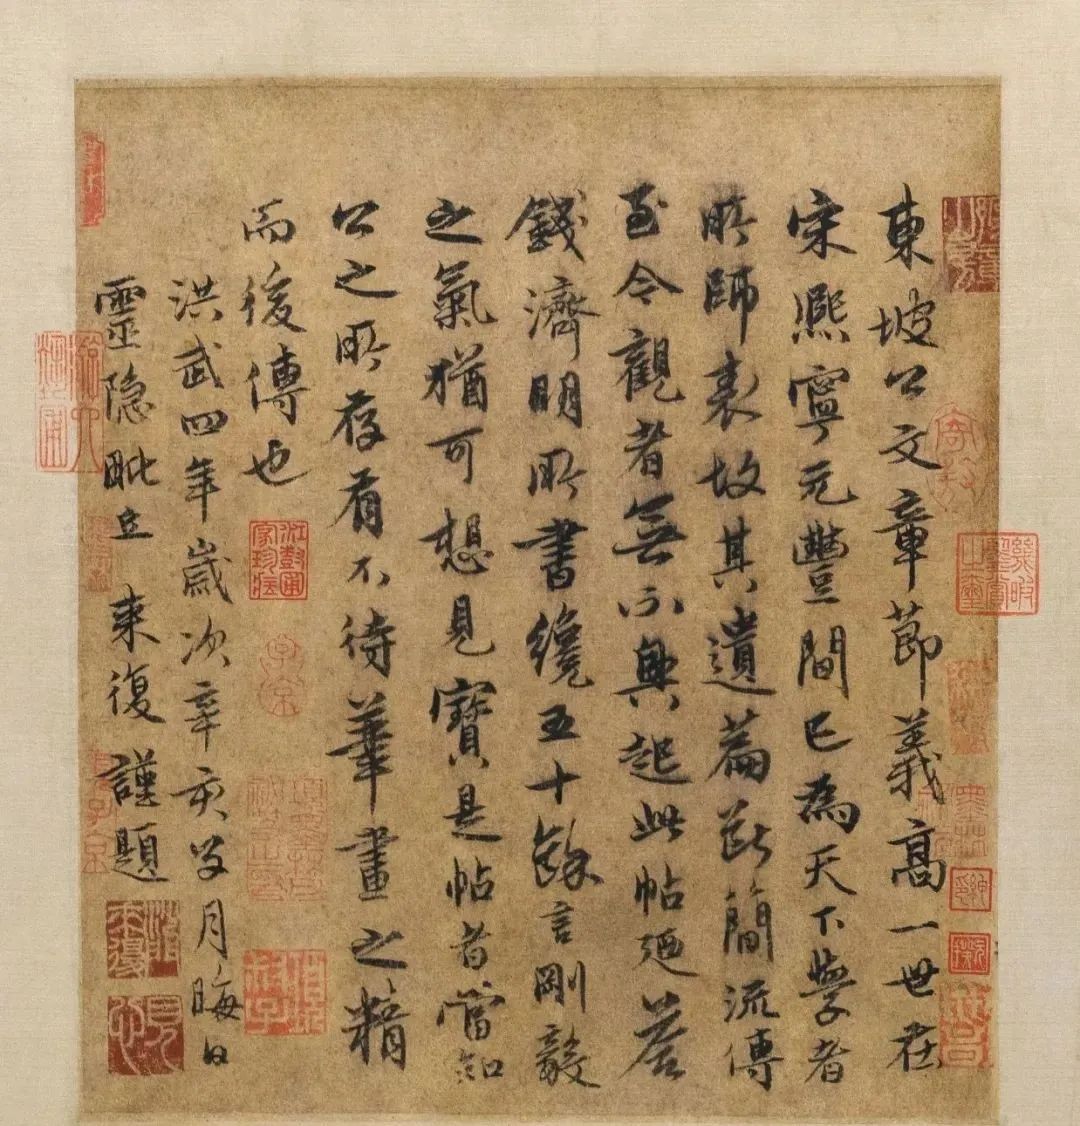 東坡公文章節義高一世在
宋熙寧元豐間已為天下學者
所師表故其遺篇斷簡流傳
至今觀者無不興起此帖廼荅
錢濟明所書纔五十餘言剛毅
之氣猶可想見寶是帖者當知
公之所存有不待筆畫之精
而後傳也
洪武四年歲次辛亥月晦日
靈隐毗丘來復謹題
子京
項墨林父祕笈之印